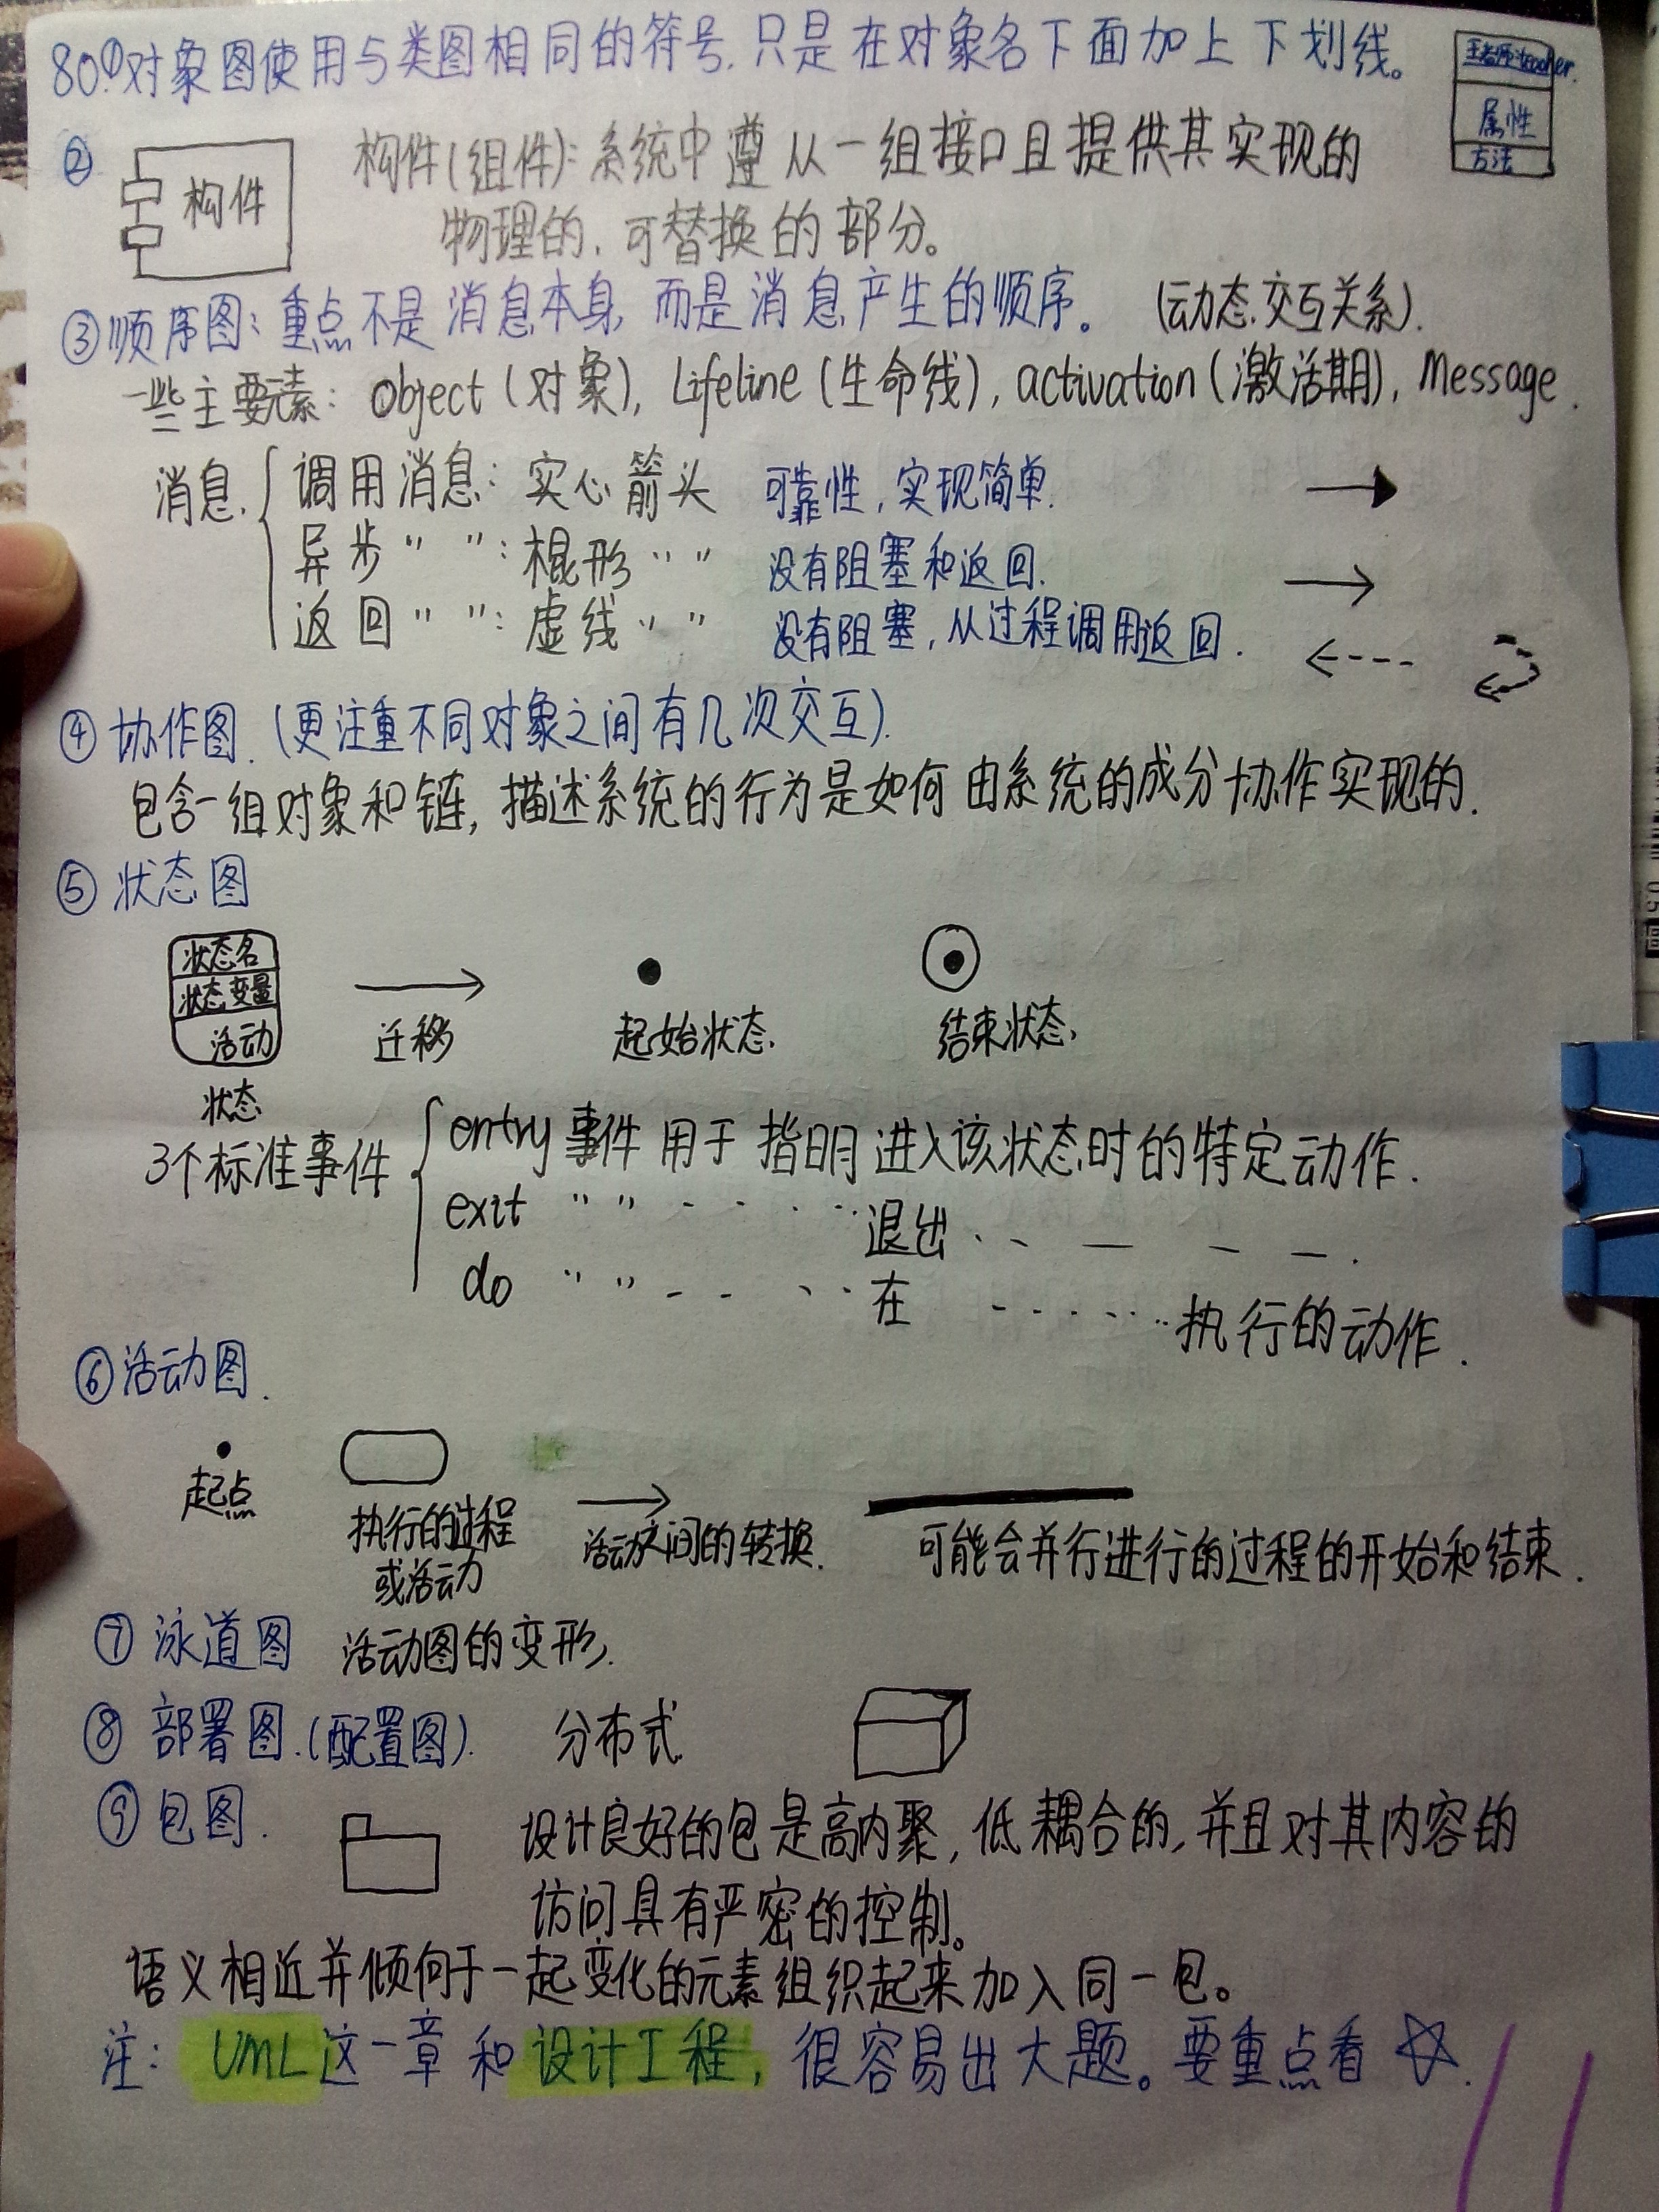 80.①对象图使用与类图相同的符号.只是在对象名下面加上下划线。
王老师:teacher.
属性
方法
② 构件 构件(组件):系统中遵从一组接口且提供其实现的
物理的.可替换的部分。
③顺序图:重点不是消息本身,而是消息产生的顺序。 (动态.交互关系).
一些主要元素: Object(对象), Lifeline(生命线), activation(激活期), Message.
消息. 调用消息: 实心箭头 可靠性,实现简单.
异步 〃 〃: 棍形 〃 〃 没有阻塞和返回.
返回 〃 〃: 虚线 〃 〃 没有阻塞,从过程调用返回.
④ 协作图.(更注重不同对象之间有几次交互).
包含一组对象和链,描述系统的行为是如何由系统的成分协作实现的.
⑤ 状态图
状态名
状态变量
活动
迁移 起始状态. 结束状态.
状态
3个标准事件 entry事件用于指明进入该状态时的特定动作.
exit 〃 〃 - - · · ·· 退出 · - — - — .
do 〃 〃 - - · · · 在 - - · · · ·· 执行的动作.
⑥活动图.
起点 执行的过程 活动之间的转换. 可能会并行进行的过程的开始和结束.
或活动
⑦ 泳道图 活动图的变形.
⑧ 部署图.(配置图). 分布式
⑨包图. 设计良好的包是高内聚,低耦合的,并且对其内容的
访问具有严密的控制。
语义相近并倾向于一起变化的元素组织起来加入同一包。
注: UML这一章和设计工程,很容易出大题。要重点看☆.